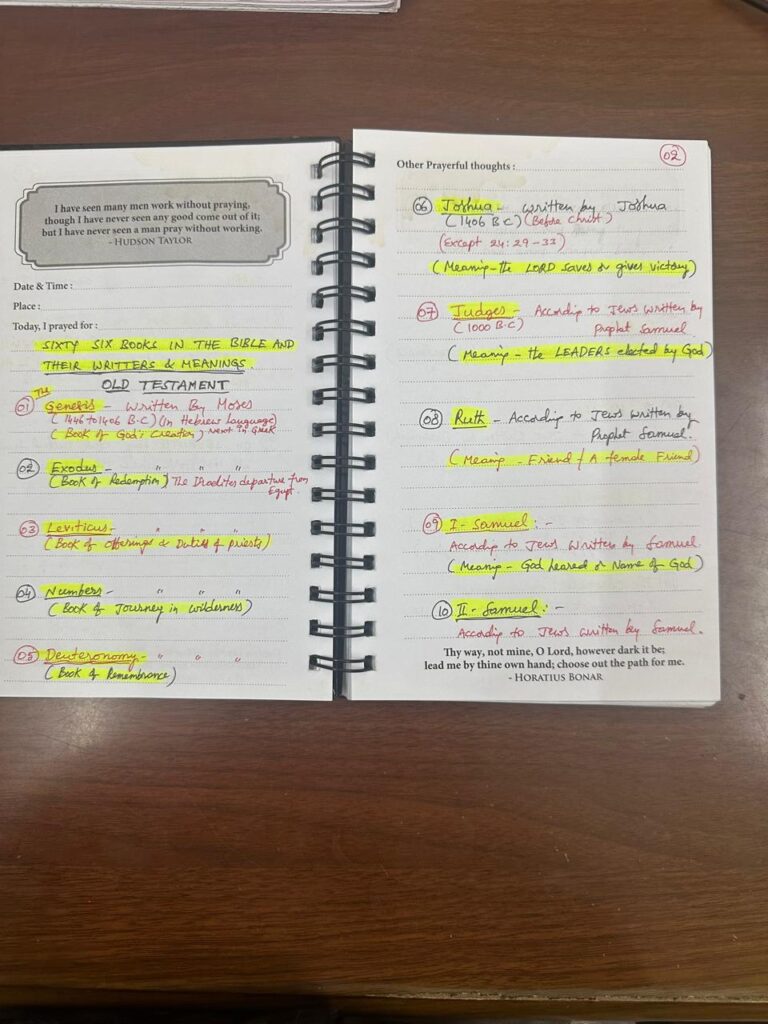 I have seen many men work without praying,
though I have never seen any good come out of it;
but I have never seen a man pray without working.
- HUDSON TAYLOR
Date & Time :
Place :
Today, I prayed for :
SIXTY SIX BOOKS IN THE BIBLE AND
THEIR WRITTERS & MEANINGS.
OLD TESTAMENT
The
01 Genesis - Written By Moses
(1446 to 1406 B.C) (In Hebrew Language)
(Book of God's Creation) Next in Greek
02 Exodus - " " "
(Book of Redemption) The Israelites departure from
Egypt.
03 Leviticus - " " "
(Book of Offerings & Duties of priests)
04 Numbers - " " "
(Book of Journey in wilderness)
05 Deuteronomy - " " "
(Book of Remembrance)
02
Other Prayerful thoughts :
06 Joshua - written by Joshua
(1406 B.C) (Before Christ)
(Except 24:29-33)
(Meaning - the LORD saves or gives victory)
07 Judges - According to Jews written by
(1000 B.C) Prophet Samuel
(Meaning - the LEADERS elected by God)
08 Ruth - According to Jews written by
Prophet Samuel.
(Meaning - Friend / A female Friend)
09 I - Samuel : -
According to Jews written by Samuel.
(Meaning - God heared or Name of God)
10 II - Samuel : -
According to Jews written by Samuel.
Thy way, not mine, O Lord, however dark it be;
lead me by thine own hand; choose out the path for me.
- HORATIUS BONAR